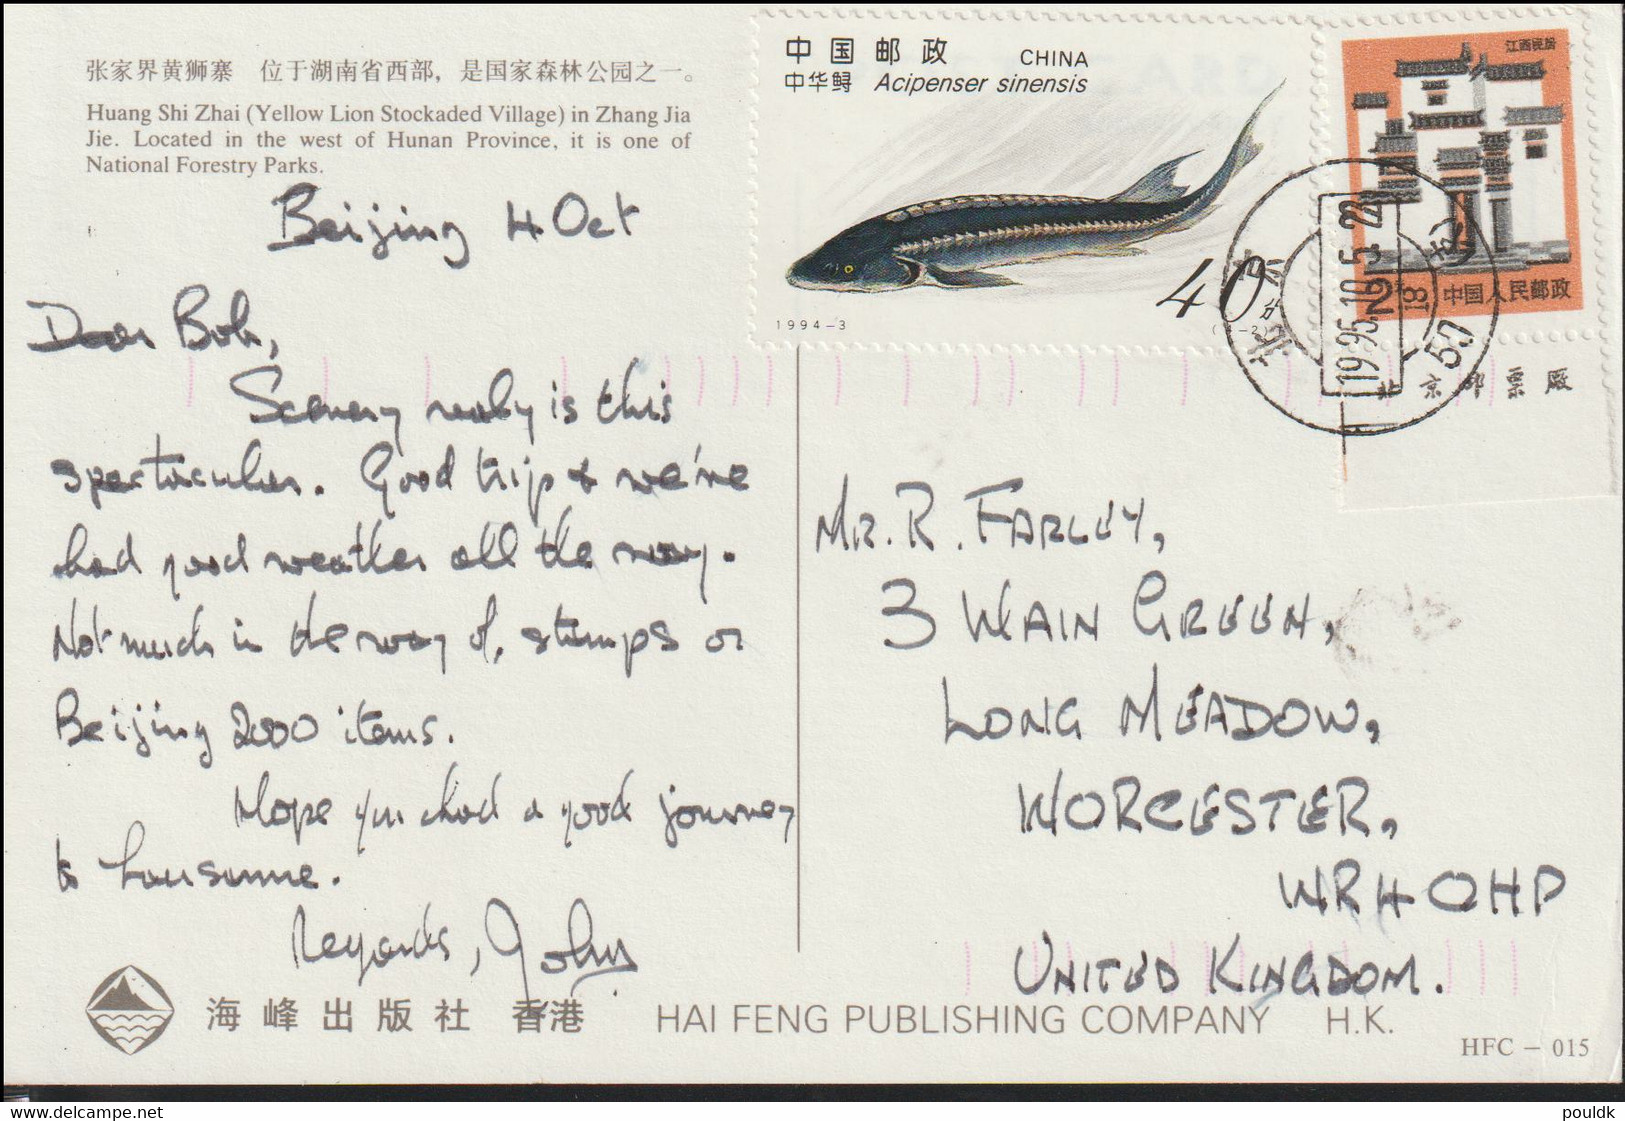 张家界黄狮寨 位于湖南省西部，是国家森林公园之一。
Huang Shi Zhai (Yellow Lion Stockaded Village) in Zhang Jia
Jie. Located in the west of Hunan Province, it is one of
National Forestry Parks.
Beijing 4 Oct
Dear Bob,
Scenery really is this
spectacular. Good trip & we've
had good weather all the way.
Not much in the way of, stamps or
Beijing 2000 items.
Hope you had a good journey
to Lausanne.
Regards, John
中国邮政 CHINA
中华鲟 Acipenser sinensis
1994-3
40分
(4-2)
江西民居
中国人民邮政
北京
1995.10.5.22
57
北京邮票厂
MR. R. FARLEY,
3 WAIN GREEN,
LONG MEADOW,
WORCESTER,
WR4 0HP
UNITED KINGDOM.
海峰出版社 香港 HAI FENG PUBLISHING COMPANY H.K.
HFC - 015
delcampe.net
pouldk